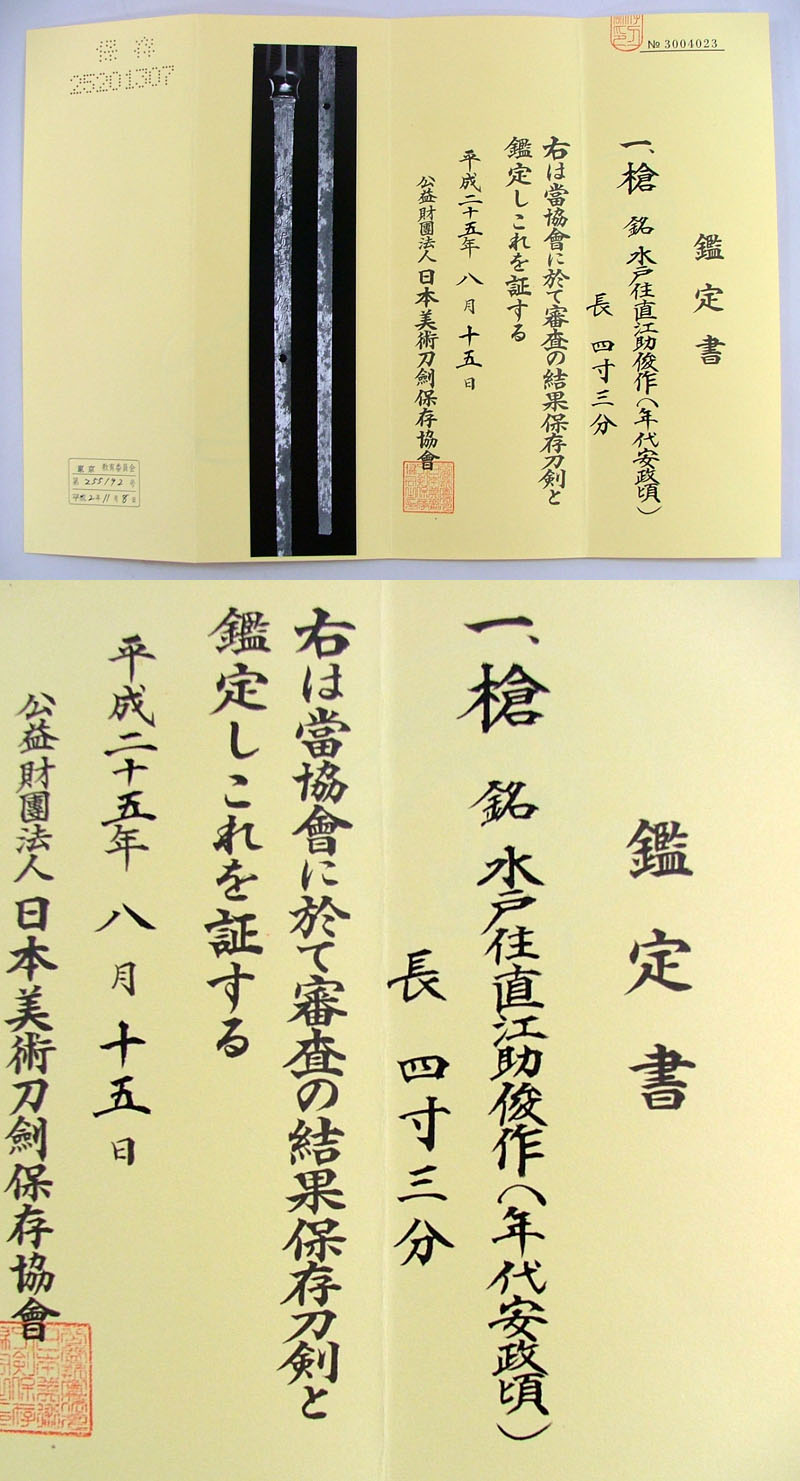 № 3004023
鑑定書
一、槍 銘 水戸住直江助俊作(年代安政頃)
長 四寸三分
右は當協會に於て審査の結果保存刀剣と
鑑定しこれを証する
平成二十五年 八月十五日
公益財團法人 日本美術刀劍保存協會
保存
25201307
東京 教育委員会
第255192号
平成2年11月8日
鑑定書
一、槍 銘 水戸住直江助俊作(年代安政頃)
長 四寸三分
右は當協會に於て審査の結果保存刀剣と
鑑定しこれを証する
平成二十五年 八月十五日
公益財團法人 日本美術刀劍保存協會